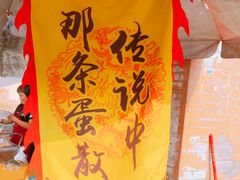 传说中
那条蛋散